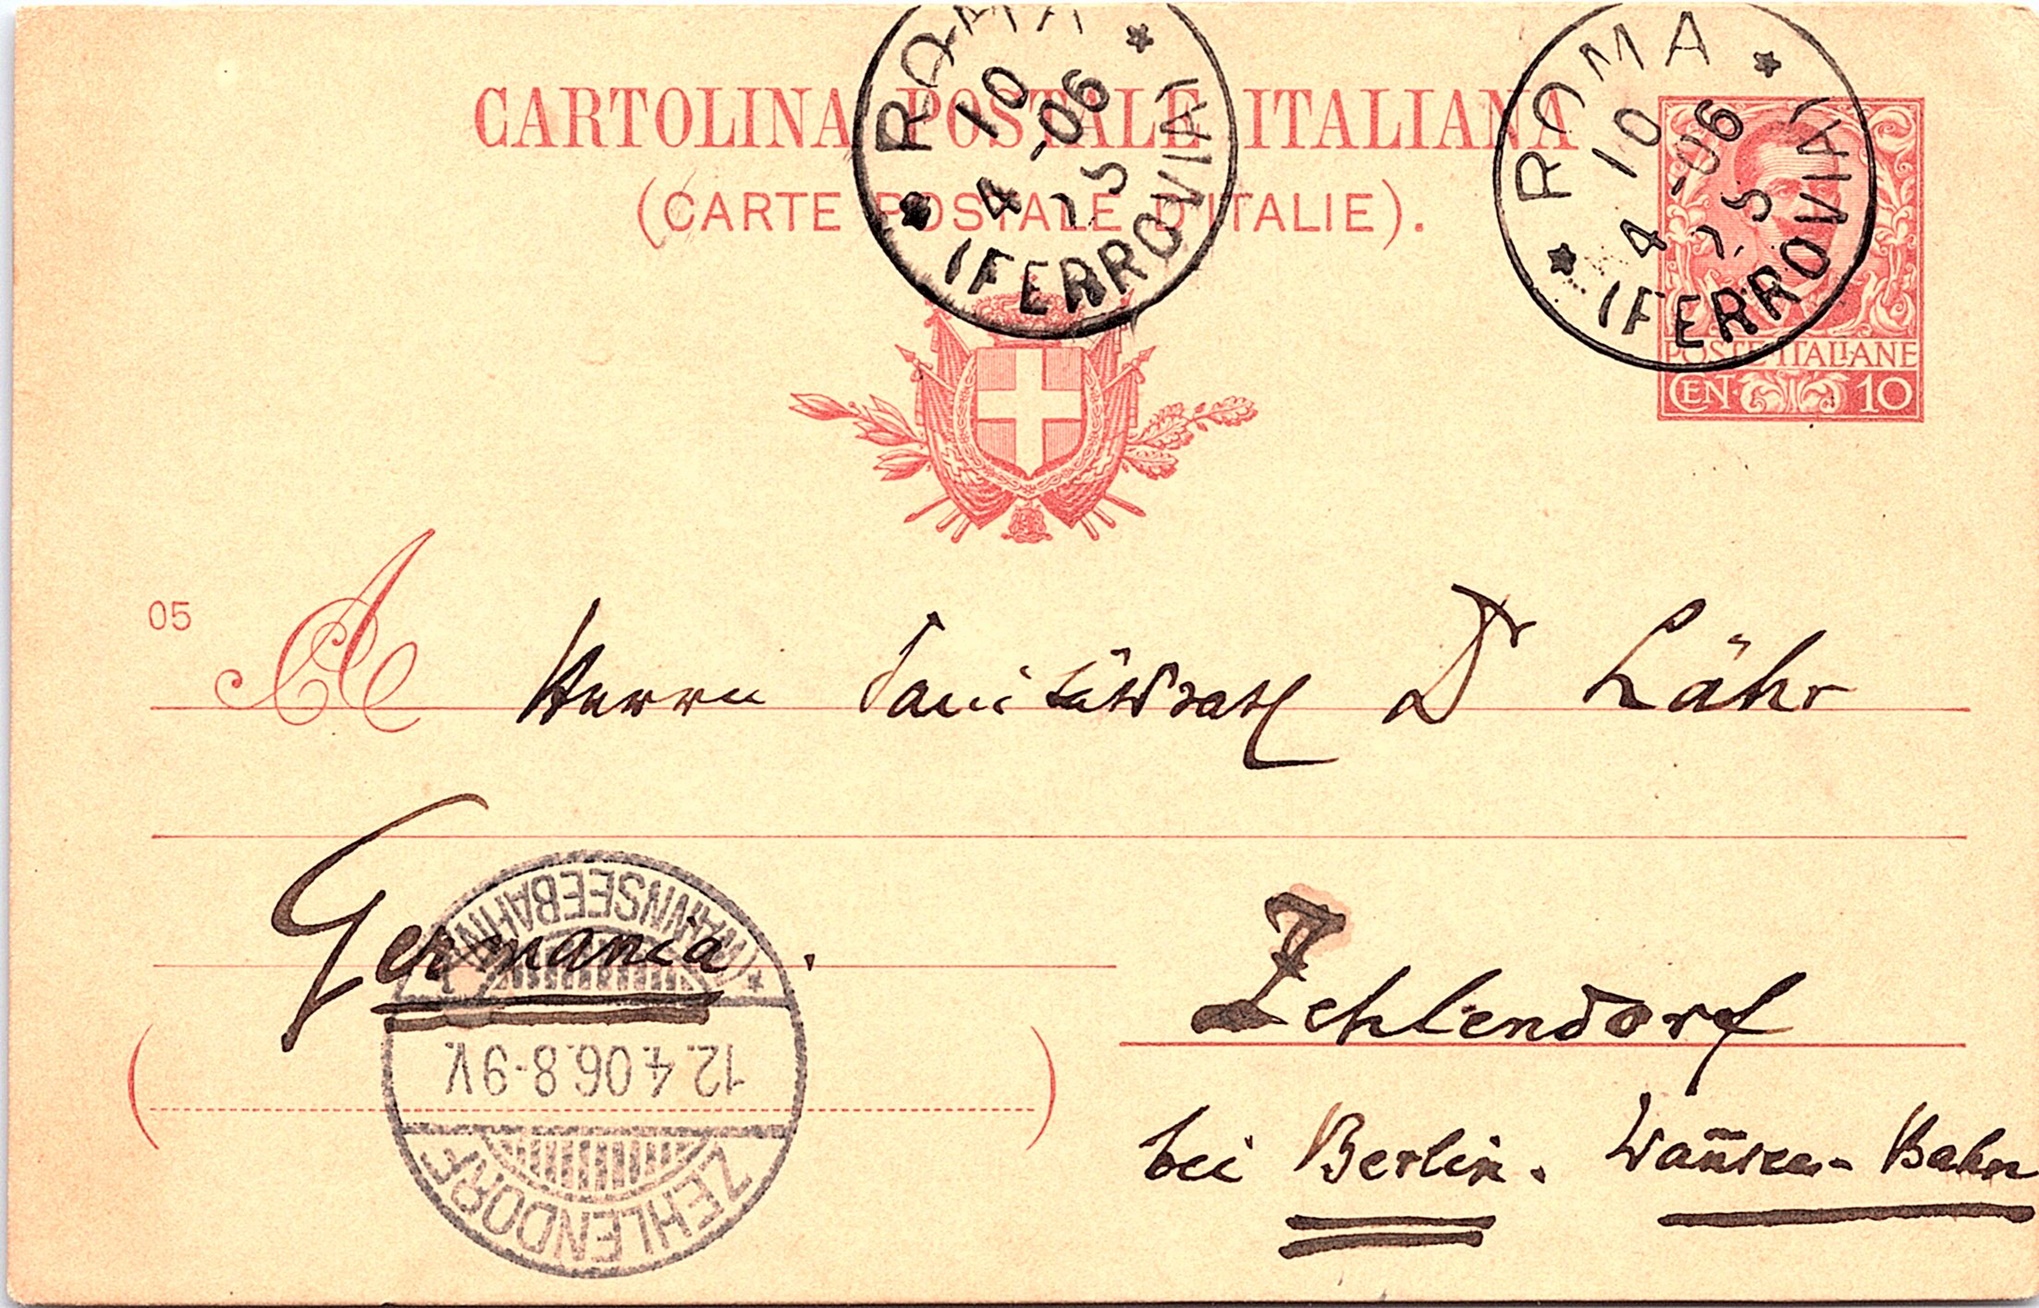 CARTOLINA POSTALE ITALIANA
(CARTE POSTALE D'ITALIE).
ROMA
10
4-06
(FERROVIA)
ROMA
10
4-06
(FERROVIA)
POSTE ITALIANE
CEN. 10
05
A Herrn Sanitätsrath Dr Lähr
Germania.
Zehlendorf
bei Berlin. Wan̄see-Bahn
ZEHLENDORF
12.4.06.8-9V.
(WANNSEEBAHN)